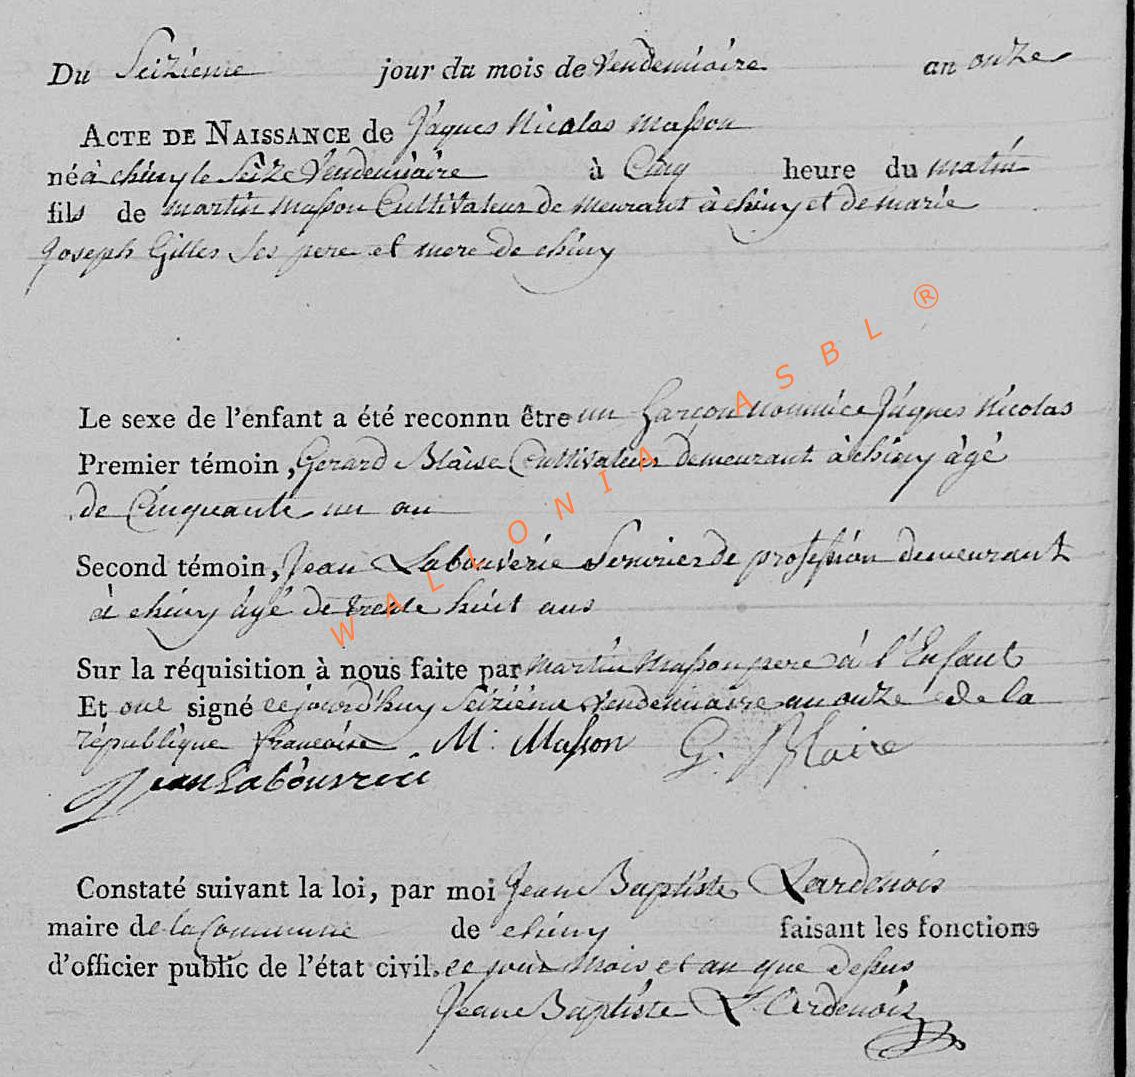 Du Seizieme jour du mois de Vendemiaire an onze
ACTE DE NAISSANCE de Jâques Nicolas Masson
né à chiny le Seize Vendemiaire à Cinq heure du matin
fils de martin Masson Cultivateur de meurant à chiny et de marie
Joseph Gilles Ses pere et mere de chiny
Le sexe de l'enfant a été reconnu être un Garçon nommée Jâques Nicolas
Premier témoin, Gerard Blaise Cultivateur demeurant à chiny âgé
de Cinquante un an
Second témoin, Jean Labouverie Serurier de profession demeurant
à chiny âgé de trente huit ans
Sur la réquisition à nous faite par martin Masson pere à l'Enfant
Et ont signé cejourd'huy Seizième Vendemiaire an onze de la
république francoise M: Masson G. Blaise
Jean Labouvrie
Constaté suivant la loi, par moi Jean Baptiste Lardenois
maire de la Commune de chiny faisant les fonctions
d'officier public de l'état civil. ce jour mois et an que dessus
Jean Baptiste Lardenois
WALLONIA ASBL ®